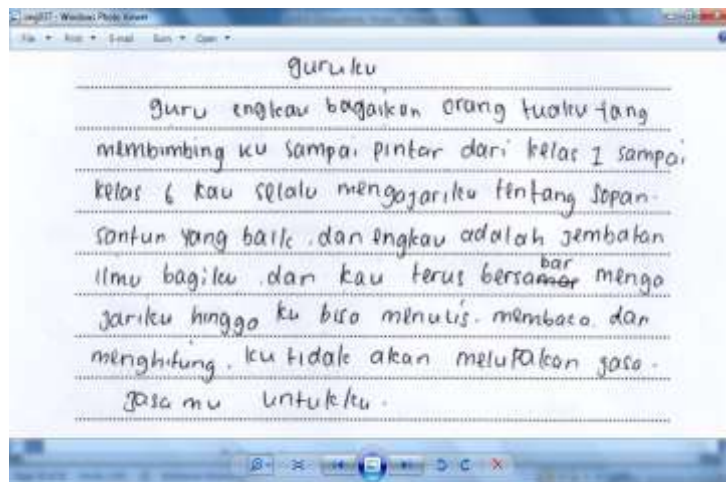 img037 - Windows Photo Viewer
File Print E-mail Burn Open
guruku
guru engkau bagaikan orang tuaku yang
membimbing ku sampai pintar dari kelas 1 sampai
kelas 6 kau selalu mengajariku tentang sopan-
santun yang baik, dan engkau adalah jembatan
ilmu bagiku, dan kau terus bersabar menga
jariku hingga ku bisa menulis. membaca. dan
menghitung. ku tidak akan melupakan jasa-
jasa mu untukku.